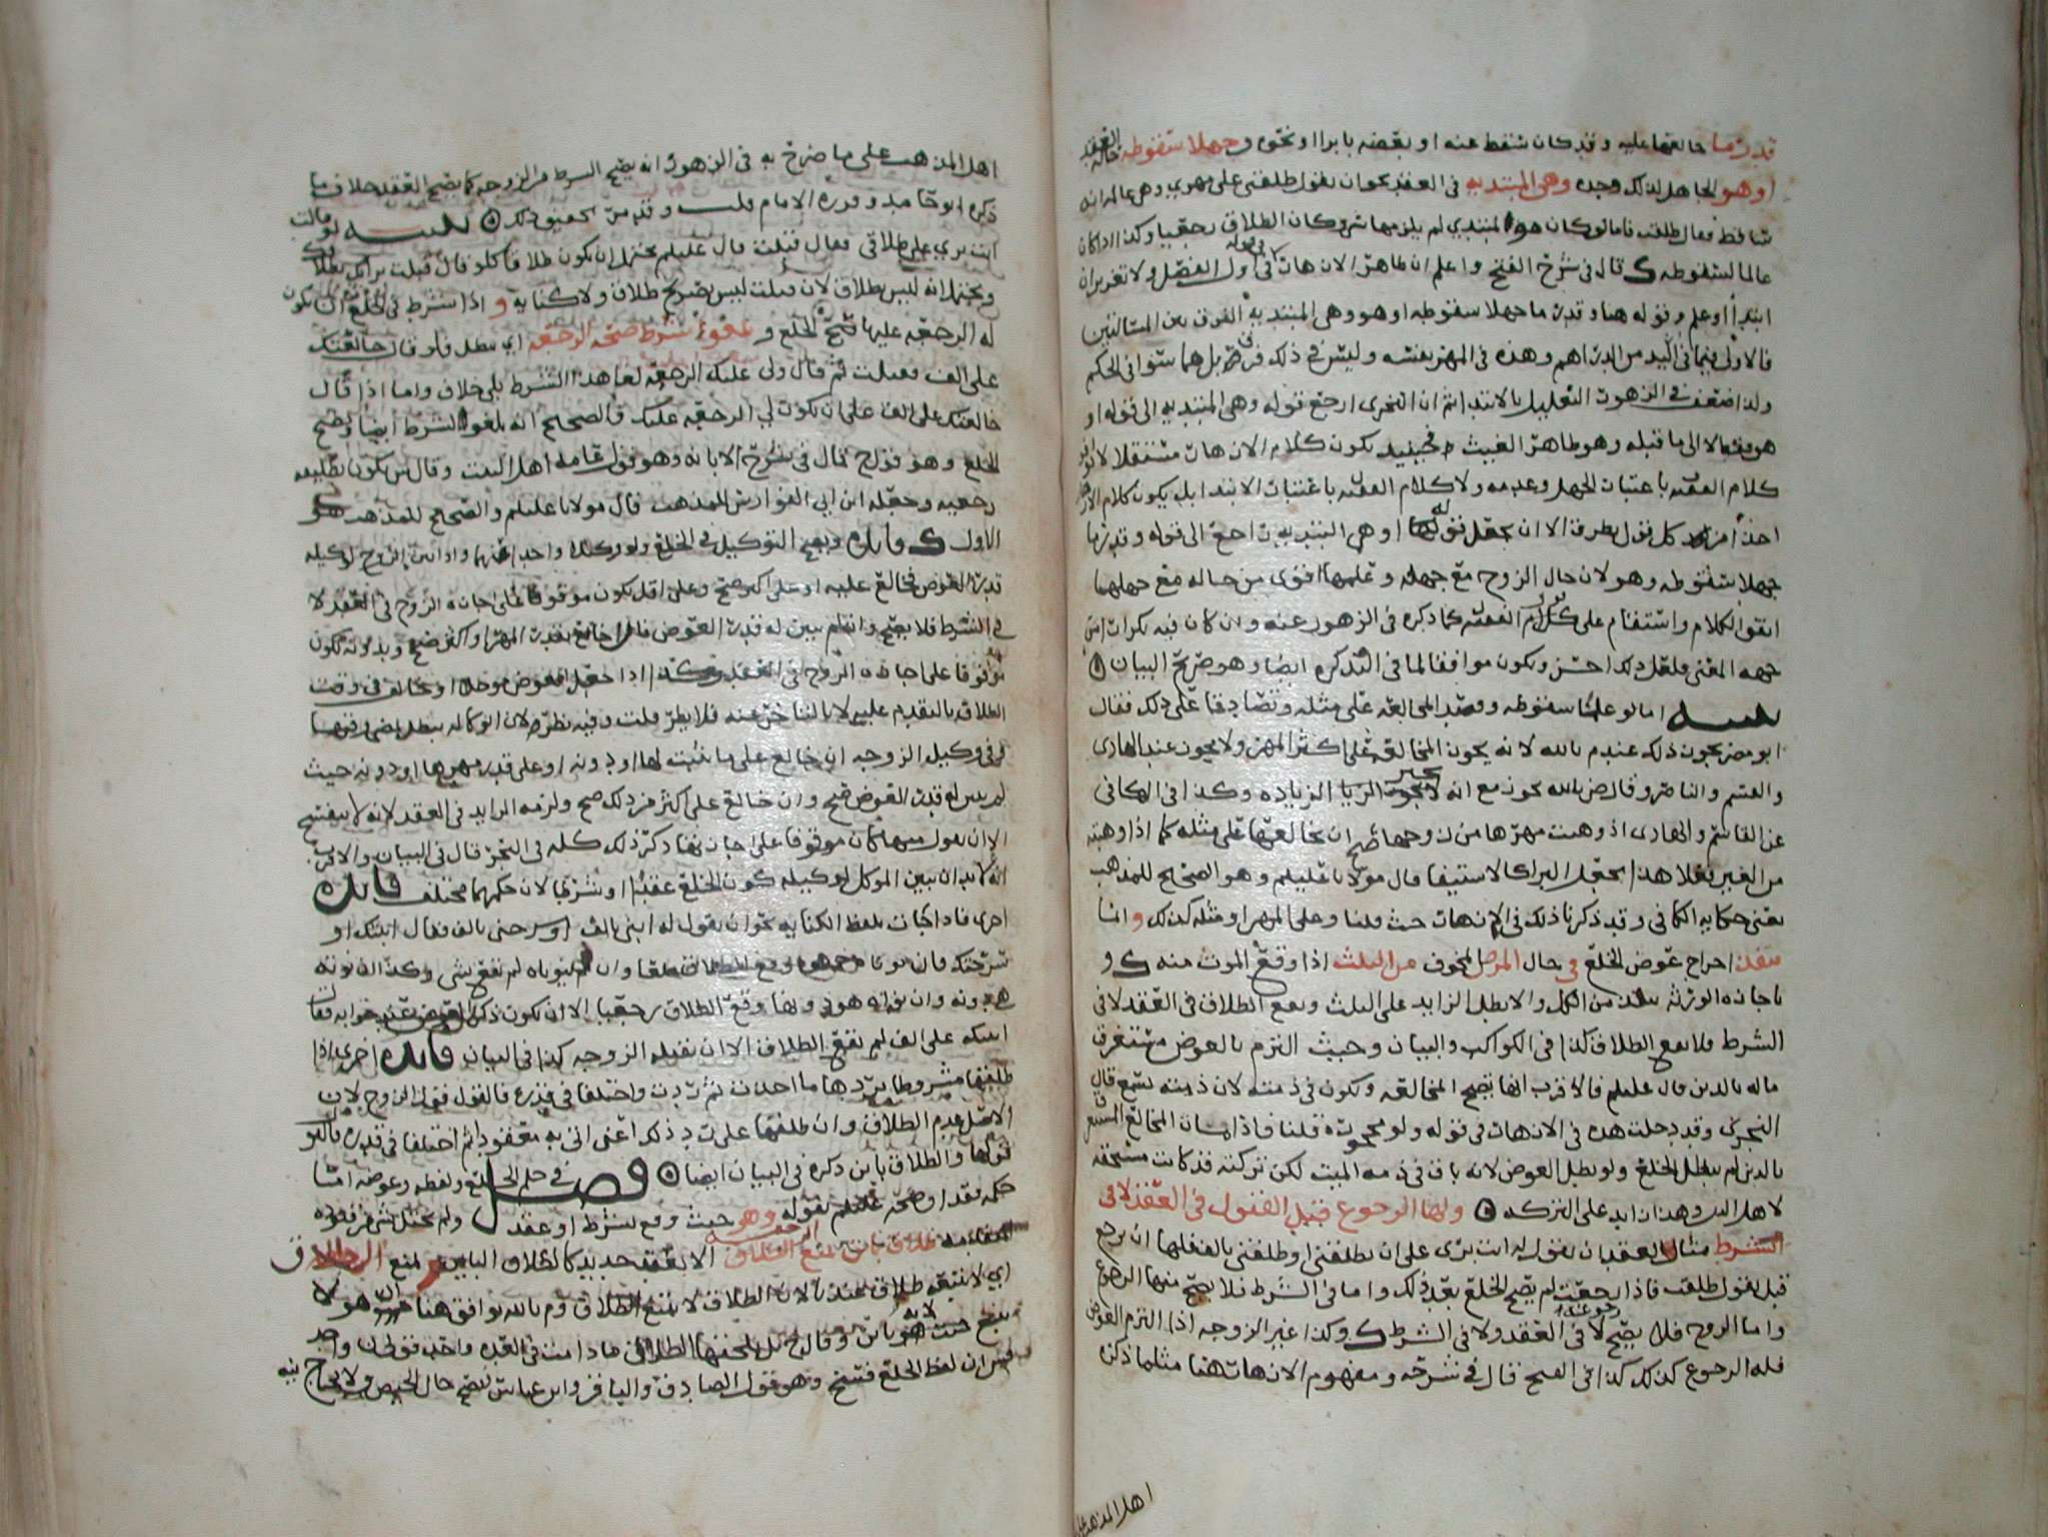 قدر ما خالعها عليه وقد كان سقط عنه او بعضه بابرا او نحوه وجهلا سقوطه حالة العقد
او هو الجاهل لذلك وحده وهي المبتدية في العقد نحو ان تقول طلقني على مهري وهي عالمة انه
ساقط فقال طلقت فاما لو كان هو المبتدي لم يلزمها شي وكان الطلاق رجعيا وكذا اذا كان
عالما لسقوطه قال في شرح الفتح واعلم ان ظاهر الازهار في اول الفصل ولا تغرير ان
ابتدا او علم وقوله هنا وقدر ما جهلا سقوطه او هو وهي المبتدية الفرق بين المسالتين
فالاولى فيما في اليد من الدراهم وهذه في المهر نفسه وليس في ذلك فرق بل هما سوا في الحكم
ولذا ضعف في الزهور التعليل بالابتدا ثم ان النجري ارجع قوله وهي المبتدية الى قوله او
هو فقط لا الى ما قبله وهو ظاهر الغيث فحينيذ يكون كلام الازهار مستقلا لا
كلام الفقيه باعتبار الجهل وعدمه ولا كلام الفقيه باعتبار الابتدا بل يكون كلام الازهار
اخذا من كل قول بطرف الا ان يجعل قوله او هي المبتدية راجع الى قوله وقدر ما
جهلا سقوطه وهو لان حال الزوج مع جهله وعلمها اقوى من حاله مع جهلهما
اتقوا الكلام واستقام على كلام الفقيه كما ذكره في الزهور عنه وان كان فيه تكرار من
جهة المعنى فلعل ذلك احسن ويكون موافقا لما في التذكره ايضا وهو صريح البيان
تنبيه اما لو علما سقوطه وقصد المخالعة على مثله وتصادقا على ذلك فقال
ابو مضر يجوز ذلك عند م بالله لانه يجوز المخالعة على اكثر المهر ولا يجوز عند الهادي
والقسم والناصر وقال ض بالله يجوز مع انه لا يجيز الزيادة وكذا في الكافي
عن القاسم والهادي اذ وهبت مهرها من زوجها صح ان يخالعها على مثله كما اذا وهبته
من الغير فعلا هذا يجعل البراكالاستيفا قال مولانا عليلم وهو الصحيح للمذهب
يعني حكاية الكافي وقد ذكرنا ذلك في الازهار حيث قلنا وعلى المهر او مثله كذلك وانما
ينفذ اخراج عوض الخلع في حال المرض المخوف من الثلث اذا وقع الموت منه و
باجازة الورثة ينفذ من الكل والا بطل الزايد على الثلث ويقع الطلاق في العقد لا في
الشرط فلا يقع الطلاق كذا في الكواكب والبيان وحيث التزم بالعوض مستغرق
ماله بالدين قال عليلم فالاقرب انها تصح المخالعة ويكون في ذمته لان ذمته تسع قال
النجري وقد دخلت هذه في الازهار في قوله ولو محجورة قلنا فاذا مات المخالع المستغرق
بالدين لم يبطل الخلع ولو بطل العوض لانه باق في ذمة الميت لكن تركته قد كانت مستحقة
لاهل الدين وهذا زايد على التركة ولها الرجوع قبل القبول في العقد لا في
الشرط مثال العقد ان تقول له انت بري على ان تطلقني او طلقني بالف فلها ان ترجع
قبل يقول طلقت فاذا رجعت لم يصح الخلع بعد ذلك واما في الشرط فلا يصح منها الرجوع
واما الزوج فلا يصح رجوعه لا في العقد ولا في الشرط وكذا غير الزوجه اذا التزم العوض
فله الرجوع كذلك كذا في الفتح قال في شرحه ومفهوم الازهار هنا مثلما ذكره
اهل المذهب على
اهل المذهب على ما صرح به في الزهور انه يصح الشرط من الزوجه كما يصح العقد خلاف ما
ذكره ابو حامد وقرره الامام قلت وقد مر تحقيق ذلك تنبيه لو قالت
انت بري على طلاقي فقال قبلت قال عليلم يحتمل ان يكون طلاقا كلو قال قبلت براي بطلا
ويحتمل انه ليس بطلاق لان قبلت ليس بصريح طلاق ولا كناية و اذا شرط في الخلع ان تكون
له الرجعه عليها صح الخلع و يلغو شرط صحة الرجعه اي يبطل فلو قال خالعتك
على الف فقبلت ثم قال ولي عليك الرجعه لغا هذا الشرط بلا خلاف واما اذا قال
خالعتك على الف على ان تكون لي الرجعه عليك فالصحيح انه يلغو الشرط ايضا ويصح
الخلع وهو قول ح قال في شرح الابانه وهو قول عامة اهل البيت وقال ش يكون تطليقه
رجعيه وجعله ابن ابي الفوارس للمذهب قال مولانا عليلم والصحيح للمذهب هو
الاول فايده ويصح التوكيل في الخلع ولو وكلا واحدا عنهما واذا بين الزوج لوكيله
قدر العوض فخالع عليه او على اكثر صح وعلى اقل يكون موقوفا على اجازة الزوج في العقد لا
في الشرط فلا يصح وان لم يبين له قدر العوض فان خالع بقدر المهر او اكثر صح وبدونه يكون
موقوفا على اجازة الزوج في العقد وكذا اذا جعل العوض موجلا او خالف في وقت
الطلاق بالتقدم عليه لا بالتاخر عنه فلا يضر قلت وفيه نظر لان الوكاله تبطل بمضي وقتها
وفي وكيل الزوجه ان خالع على ما عينت لها او دونه او على قدر مهرها او دونه حيث
لم يبين له قدر العوض صح وان خالع على اكثر من ذلك صح ولزمه الزايد في العقد لانه لا يفتقح
الا ان يقول كان موقوفا على اجازتها ذكر ذلك كله في البحر قال في البيان والاقرب
انه لا بد ان يبين الموكل لوكيله كون الخلع عقدا او شرطا لان حكمهما مختلف فايده
اخرى فاذا كان بلفظ الكناية نحو ان يقول له ابني بالف او سرحني بالف فقال ابنتك او
سرحتك فان نويا جميعا وقع الطلاق خلعا وان لم ينوياه لم يقع شي وكذا ان نوته
هي دونه وان نواه هو دونها وقع الطلاق رجعيا الا ان يكون ذكر العوض في جوابه فقال
ابنتك على الف لم يقع الطلاق الا ان تقبله الزوجه كذا في البيان فايده اخرى اذا
طلقها مشروطا برد ما اخذت ثم ردت واختلفا في قدره فالقول قول الزوج لان
الاصل عدم الطلاق وان طلقها على رد ذلك اعني اتى به معقودا ثم اختلفا في قدره فالقول
قولها والطلاق باين ذكره في البيان ايضا فصل في حكم الخلع ولفظه وعوضه اما
حكمه فقد اوضحه عليلم بقوله وهو حيث وقع بشرط او عقد ولم يختل شي من قيوده
المتقدمه طلاق باين يمنع الرجعه الا بعقد جديد كالطلاق الباين و يمنع الطلاق
اي لا يتبعه طلاق عندنا لان الطلاق لا يتبع الطلاق و م بالله يوافق هنا انه هو لا
يتبع حيث هو باين وقال ح بل يلحقها الطلاق ما دامت في العده واحد قولي ن واحد
قولي ش ان لفظ الخلع فسخ وهو قول الصادق والباقر وابن عباس يصح حال الحيض ولا يحتاج نيه